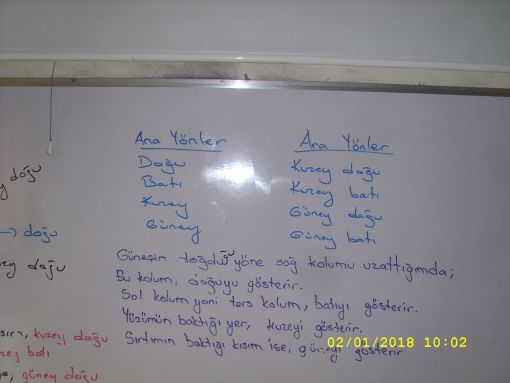 Ana Yönler
Doğu
Batı
Kuzey
Güney
Ara Yönler
Kuzey doğu
Kuzey batı
Güney doğu
Güney batı
Güneşin doğduğu yöne sağ kolumu uzattığımda;
Bu kolum, doğuyu gösterir.
Sol kolum yani ters kolum, batıyı gösterir.
Yüzümün baktığı yer, kuzeyi gösterir.
Sırtımın baktığı kısım ise, güneyi gösterir
doğu
→ doğu
doğu
kuzey doğu
batı
güney doğu
02/01/2018 10:02